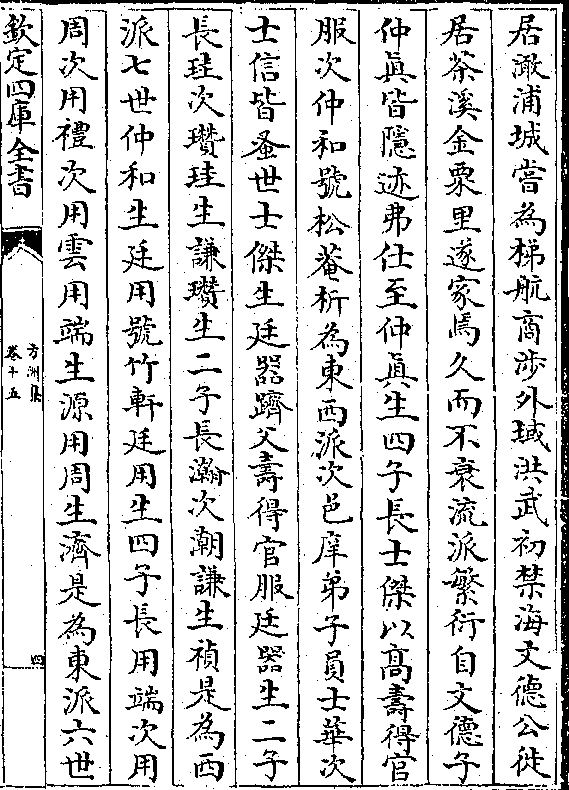 居澉浦城嘗為梯航商涉外域洪武初禁海文德公徙
居茶溪金粟里遂家焉久而不衰流派繁衍自文德子
仲眞皆隱迹弗仕至仲眞生四子長士傑以高壽得官
服次仲和號松菴析為東西派次邑庠弟子員士華次
士信皆蚤世士傑生廷器躋父壽得官服廷器生二子
長珪次瓚珪生謙瓚生二子長瀚次潮謙生禎是為西
派七世仲和生廷用號竹軒廷用生四子長用端次用
周次用禮次用雲用端生源用周生濟是為東派六世
欽定四庫全書
方洲集
卷十五
四